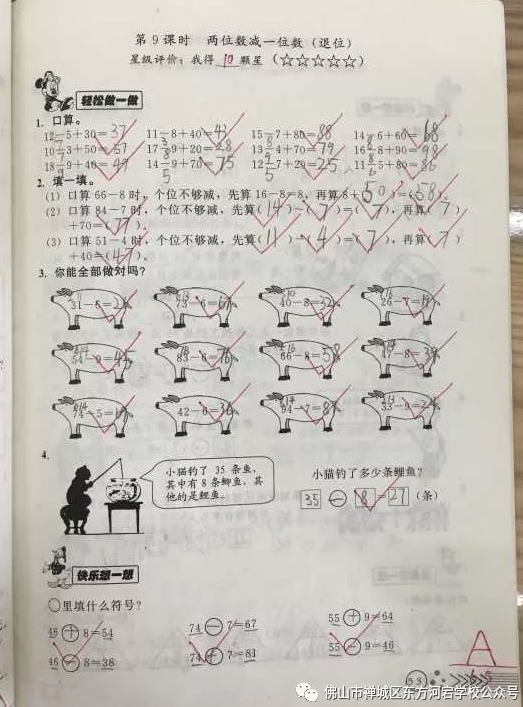 第9课时 两位数减一位数（退位）
星级评价：我得 10 颗星（☆☆☆☆☆）
轻松做一做
1. 口算。
12-5+30=37 11-8+40=43 15-7+80=88 14-6+60=68
10-3+50=57 17-9+20=28 13-4+70=79 16-8+90=98
18-9+40=49 14-9+70=75 12-7+20=25 11-5+80=86
2. 填一填。
(1) 口算 66-8 时，个位不够减，先算 16-8=8，再算 8+(50)=(58)。
(2) 口算 84-7 时，个位不够减，先算(14)-(7)=(7)，再算(7)
+70=(77)。
(3) 口算 51-4 时，个位不够减，先算(11)-(4)=(7)，再算(7)
+40=(47)。
3. 你能全部做对吗？
73-6=67 40-8=32 26-7=19
54-9=45 83-6= 66-8=58 47-8=39
74-5= 42-6=36 94-7=87 33-9=24
4.
小猫钓了 35 条鱼，
其中有 8 条鲫鱼，其
他的是鲤鱼。
小猫钓了多少条鲤鱼？
35 - 8 = 27 (条)
快乐想一想
○里填什么符号？
46 + 8=54 74 - 7=67 55 + 9=64
46 - 8=38 74 + 7=81 55 - 9=46
A
53
佛山市禅城区东方河宕学校公众号